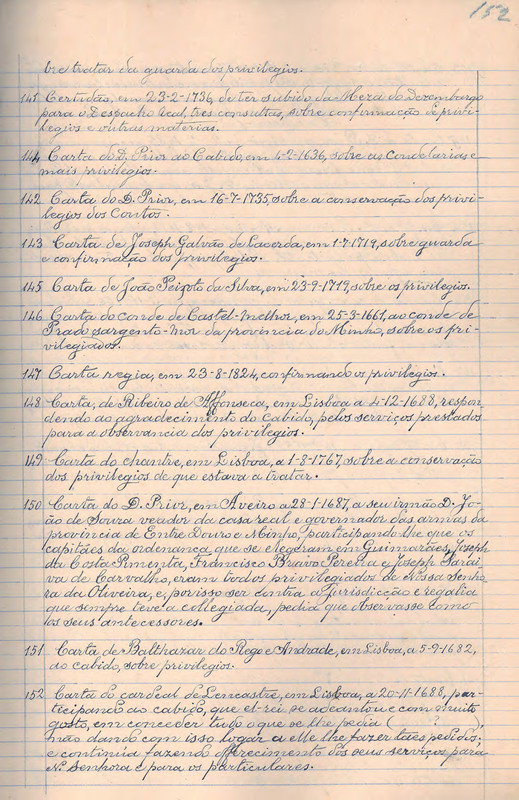 152
bre tratar da guarda dos privilegios.
141 Certidão, em 23-2-1736, de ter subido da Meza do Dezembargo
para o Despacho Real, tres consultas, sobre confirmação de privi-
legios e outras materias.
144 Carta do D. Prior ao Cabido, em 4-2-1636, sobre as Coudelarias e
mais privilegios.
142 Carta do D. Prior, em 16-7-1735, sobre a conservação dos privi-
legios dos Coutos.
143 Carta de Joseph Galvão de Lacerda, em 1-7-1719, sobre guarda
e confirmação dos privilegios.
145 Carta de João Peixoto da Silva, em 23-9-1719, sobre os privilegios.
146 Carta do conde de Castel-Melhor, em 25-3-1661, ao conde de
Prado sargento-mor da provincia do Minho, sobre os pri-
vilegiados.
147 Carta regia, em 23-8-1824, confirmando os privilegios.
148 Carta, de Ribeiro de Affonseca, em Lisboa a 4-12-1688, respon-
dendo ao agradecimento do Cabido, pelos serviços prestados
para a observancia dos privilegios.
149 Carta do chantre, em Lisboa, a 1-8-1767, sobre a conservação
dos privilegios de que estava a tratar.
150 Carta do D. Prior, em Aveiro a 28-1-1687, a seu irmão D. Jo-
ão de Souza veador da casa real e governador das armas da
provincia de Entre Douro e Minho, participando-lhe que os
capitães da ordenança que se elegeram em Guimarães, Joseph
da Costa Pimenta, Francisco Bravo Pereira e Joseph Sarai-
va de Carvalho, eram todos privilegiados de Nossa Senho-
ra da Oliveira, e, por isso ser contra a jurisdicção e regalia
que sempre teve a collegiada, pedia que observasse como
os seus antecessores.
151 Carta de Balthazar do Rego e Andrade, em Lisboa, a 5-9-1682,
ao cabido, sobre privilegios.
152 Carta do cardeal de Lencastre, em Lisboa, a 20-11-1688, par-
ticipando ao cabido, que el-rei se adeantou com muito
gosto, em conceder tudo o que se lhe pedia ( ? ),
não dando com isso logar a elle lhe fazer taes pedidos,
e continua fazendo offerecimento dos seus serviços para
N. Senhora e para os particulares.